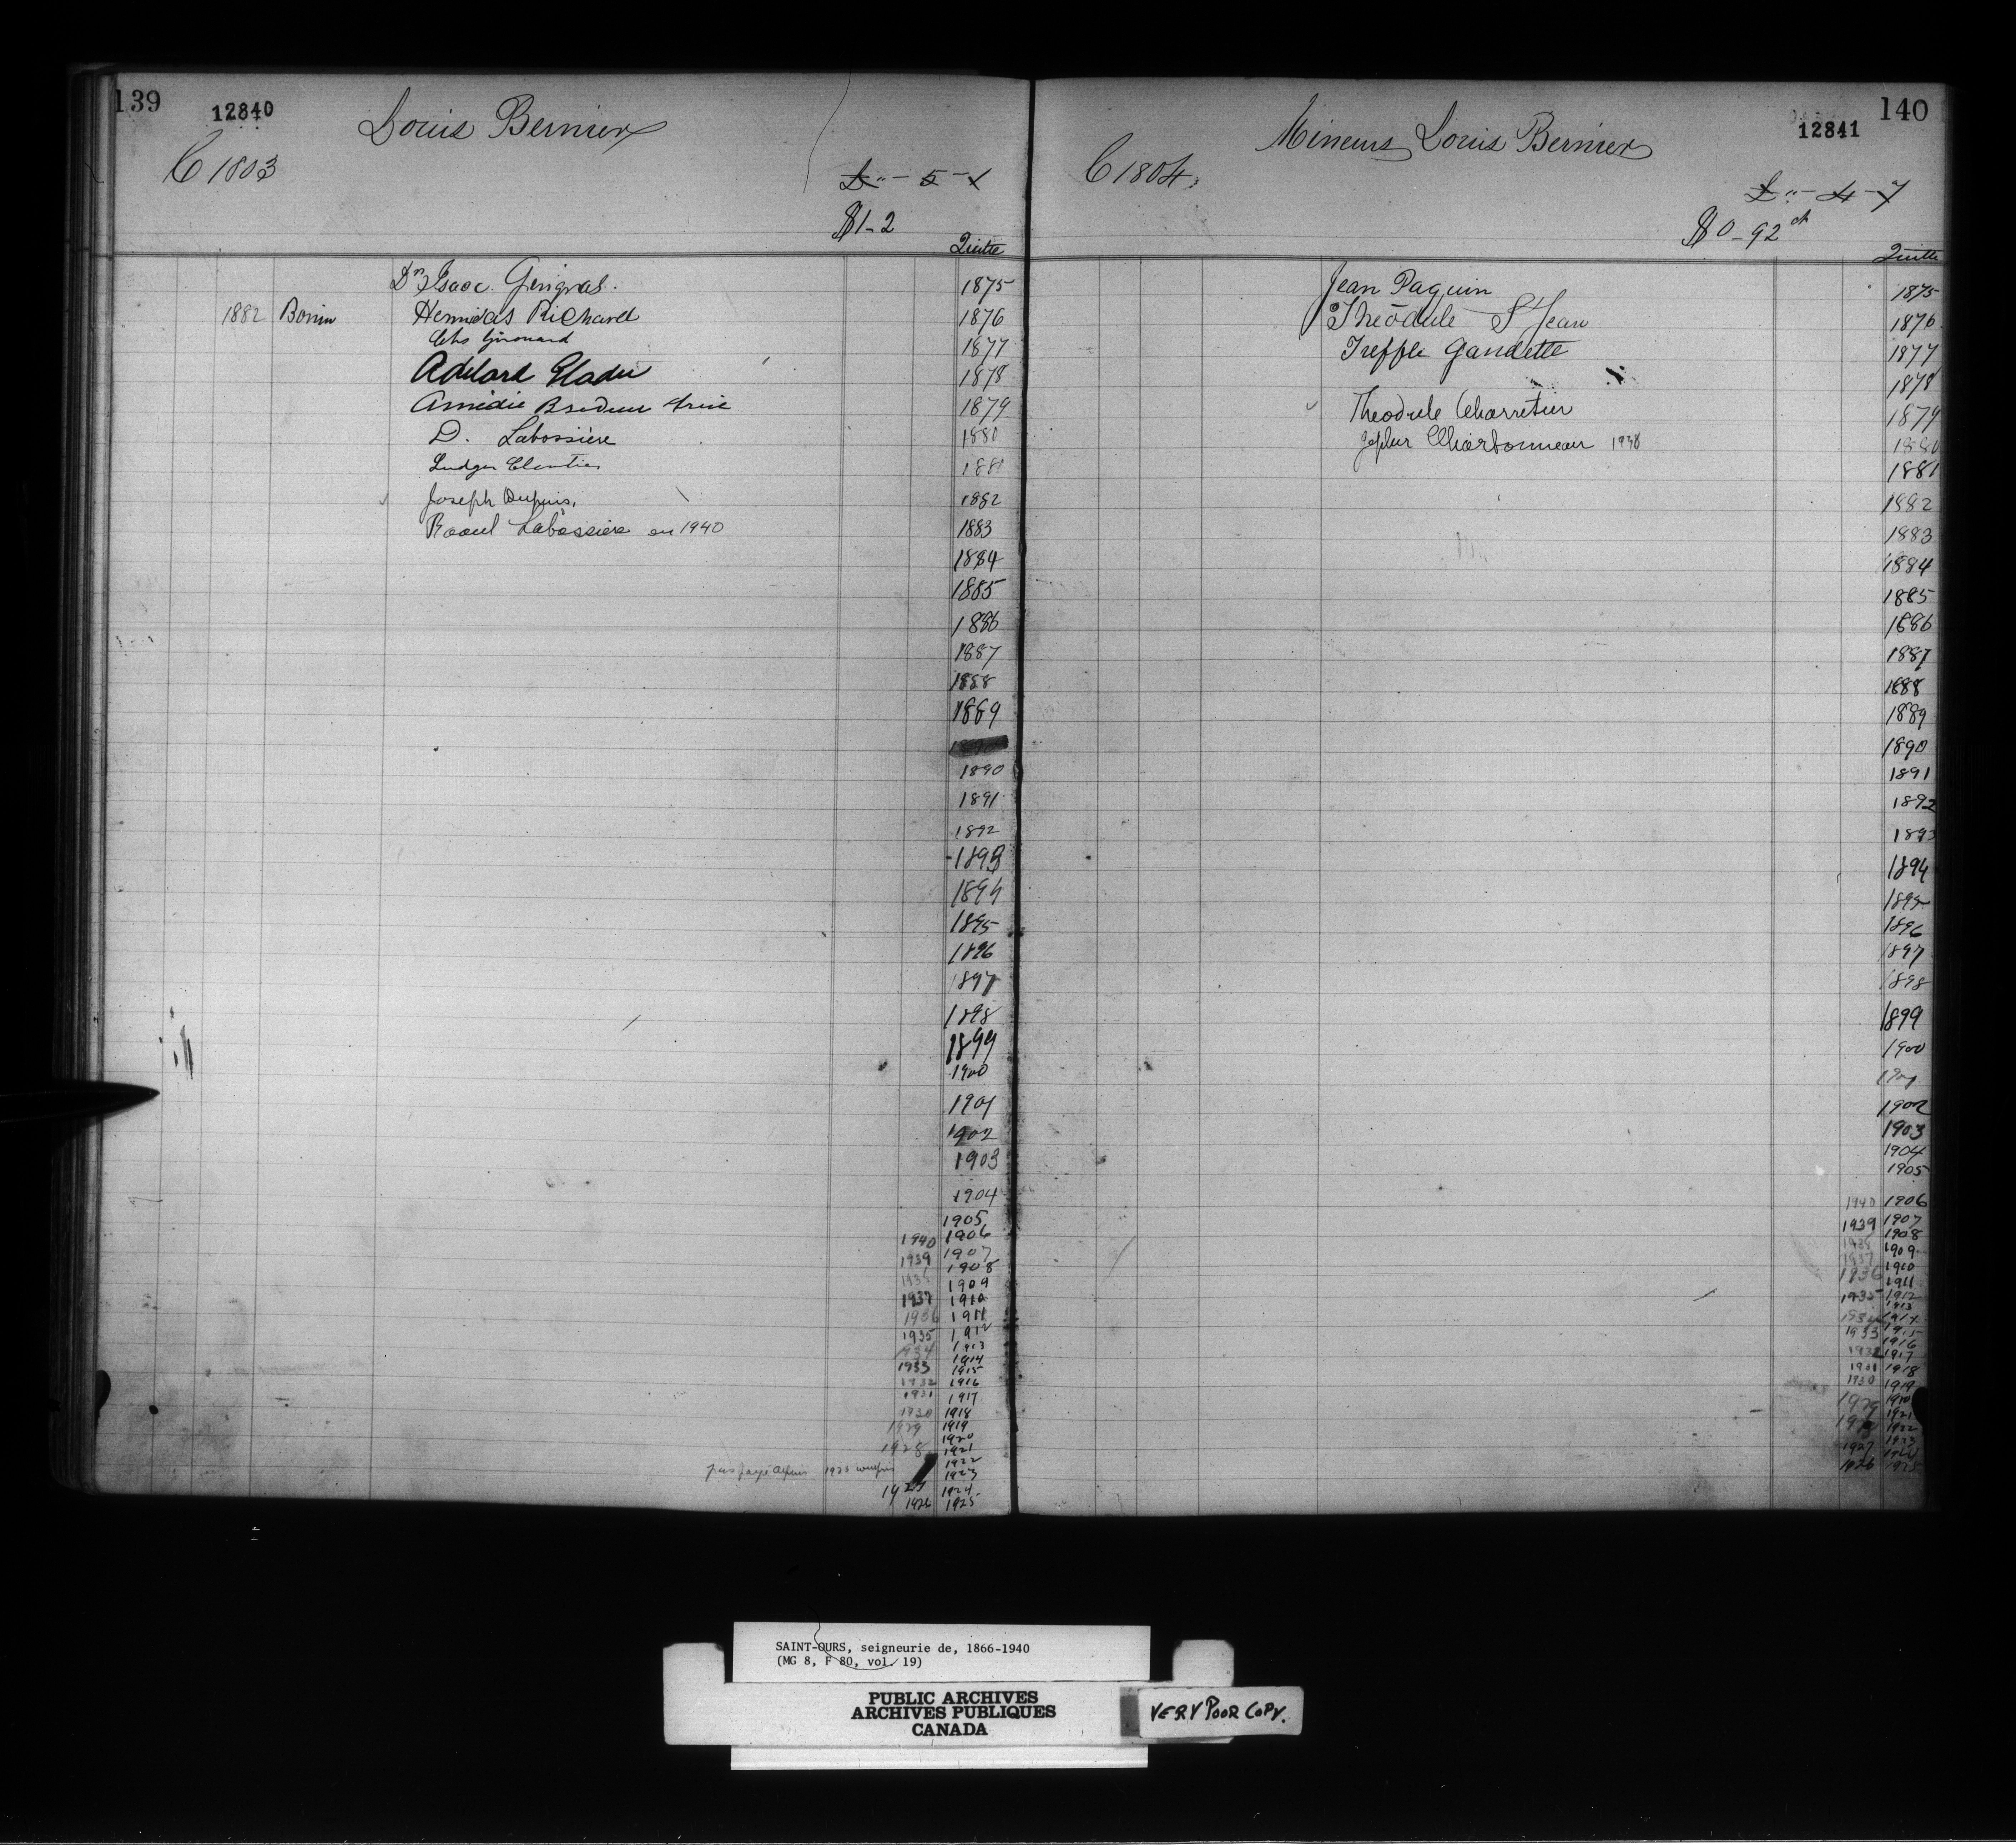 139
12840
Louis Bernier
C 1803
£ " - 5 - 1
$1-2
Quitte
Dr Isaac Gingras.
1875
1882 Bonin Hermidas Richard
1876
Girouard
1877
Adélard Gladu
1878
Amédée
1879
D. Labossière
1880
Ludger
1881
Joseph Dupuis,
1882
Raoul Labossière en 1940
1883
1884
1885
1886
1887
1888
1889
1890
1891
1892
1893
1894
1895
1896
1897
1898
1899
1900
1901
1902
1903
1904
1905
1940 1906
1939 1907
1908
1909
1937 1910
1911
1935 1912
1934 1913
1914
1933 1915
1932 1916
1931 1917
1930 1918
1929 1919
1920
1928 1921
1922
pas payé depuis 1923
1923
1924
1925
140
12841
Mineurs Louis Bernier
C 1804.
£ " - 4 - 7
$0-92 ct
Quitte
Jean Paquin
1875
Théodule St Jean
1876
Treffle Gaudette
1877
1878
Theodule Charretier
1879
Charbonneau 1938
1880
1881
1882
1883
1884
1885
1886
1887
1888
1889
1890
1891
1892
1893
1894
1895
1896
1897
1898
1899
1900
1901
1902
1903
1904
1905
1940 1906
1939 1907
1938 1908
1937 1909
1936 1910
1911
1935 1912
1913
1934 1914
1933 1915
1916
1932 1917
1918
1930 1919
1921
1922
1927
1926 1925
SAINT-OURS, seigneurie de, 1866-1940
(MG 8, F 80, vol. 19)
PUBLIC ARCHIVES
ARCHIVES PUBLIQUES
CANADA
VERY POOR COPY.